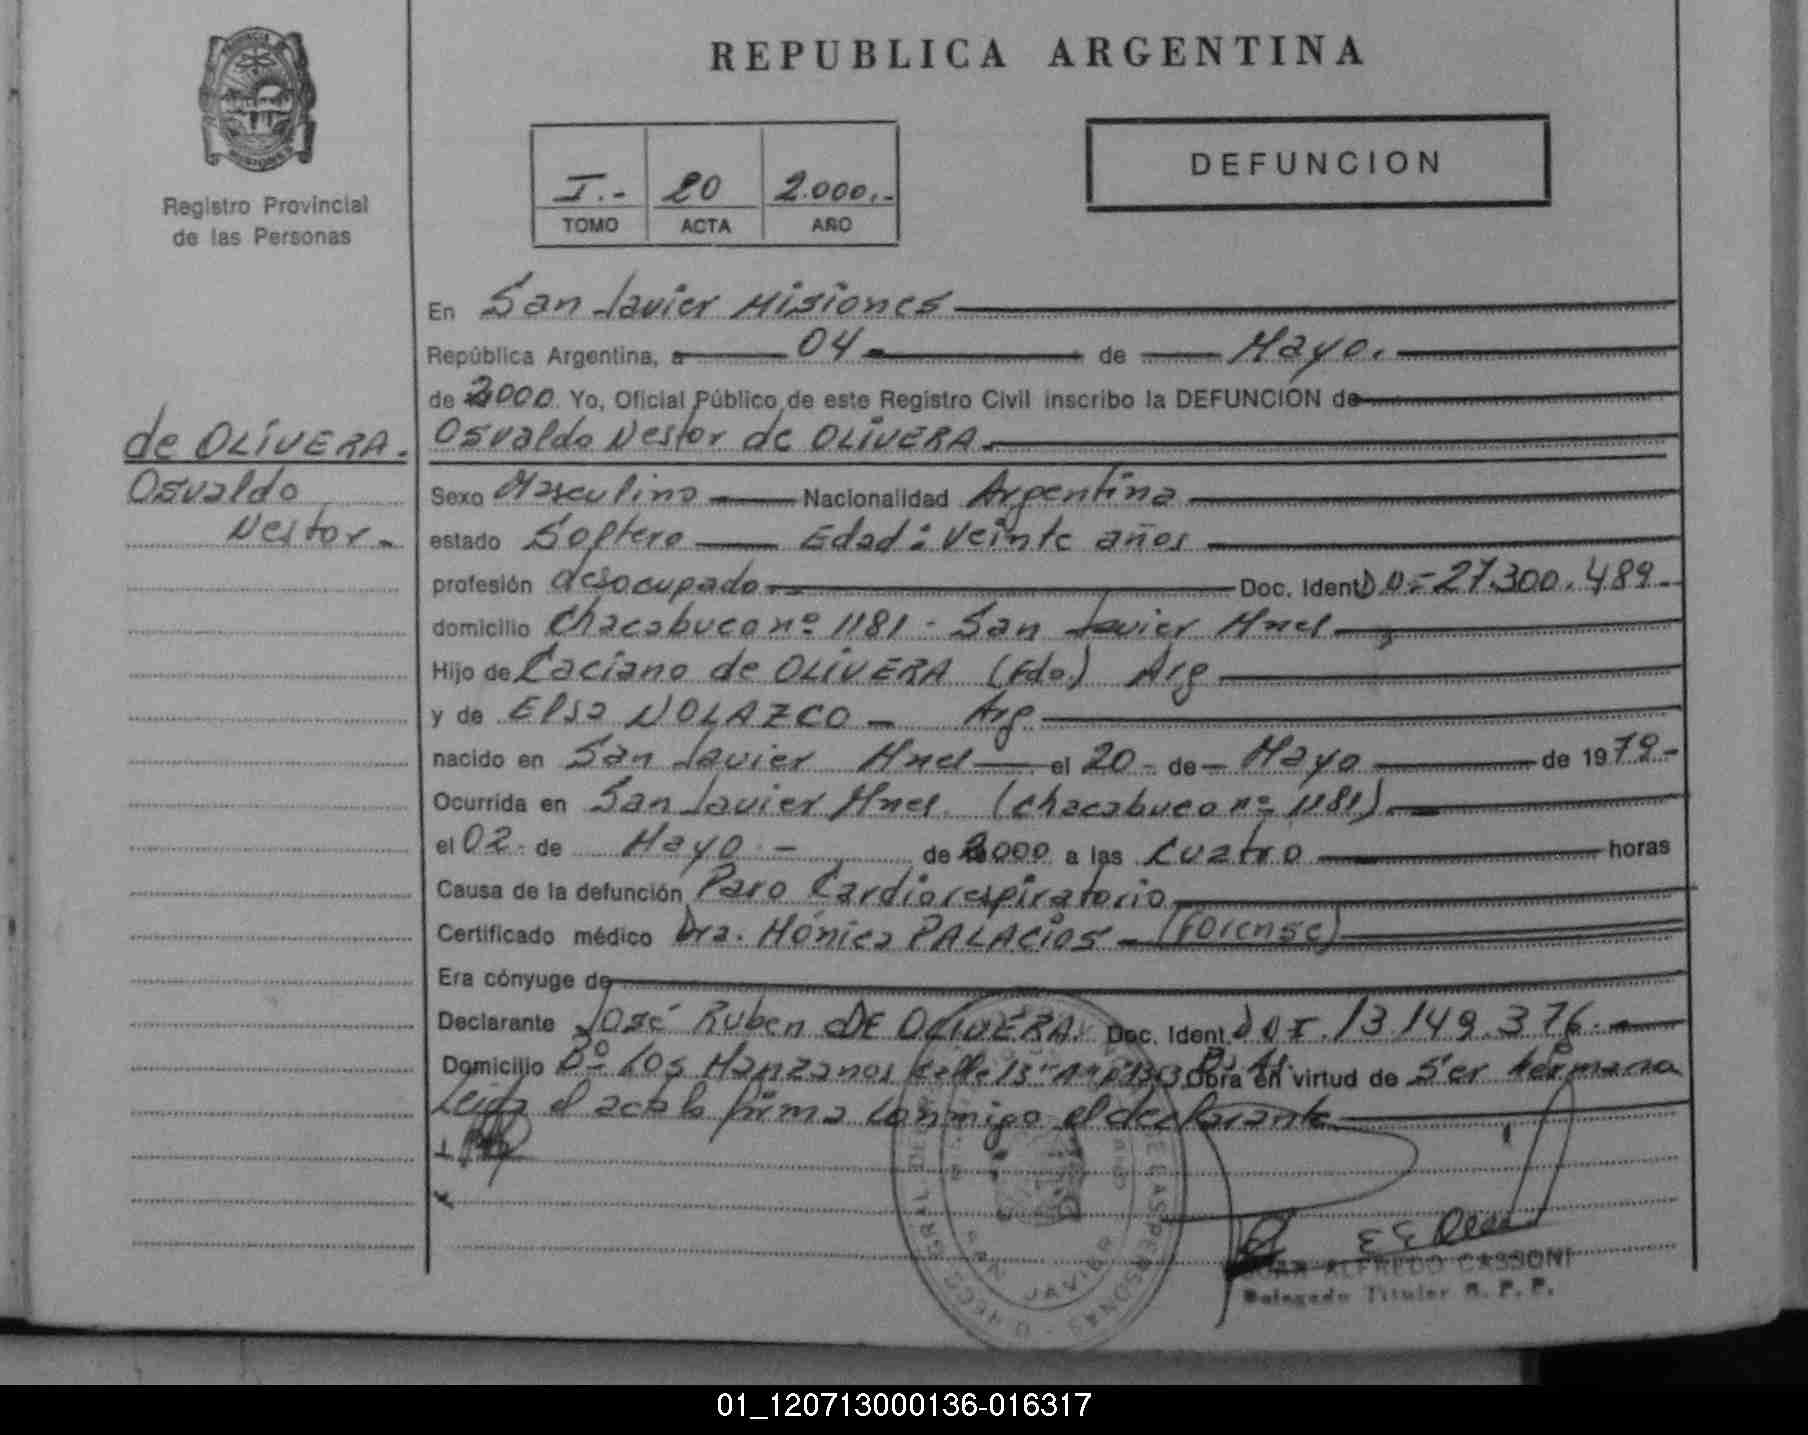 PROVINCIA DE
MISIONES
Registro Provincial
de las Personas
REPUBLICA ARGENTINA
I.- 20 2.000.-
TOMO ACTA AÑO
DEFUNCION
En San Javier Misiones
República Argentina, a 04 de Mayo.
de 2000. Yo, Oficial Público de este Registro Civil inscribo la DEFUNCION de
de OLIVERA.
Osvaldo Nestor de OLIVERA.
Osvaldo
Nestor.-
Sexo Masculino Nacionalidad Argentina
estado Soltero Edad: Veinte años
profesión desocupado Doc. Ident. 27.300.489.-
domicilio Chacabuco nº 1181 - San Javier Mnes
Hijo de Caciano de OLIVERA (Fdo) Arg
y de Elsa NOLAZCO - Arg.
nacido en San Javier Mnes el 20 - de Mayo de 1979.-
Ocurrida en San Javier Mnes. (Chacabuco nº 1181)
el 02 de Mayo.- de 2000 a las Cuatro horas
Causa de la defunción Paro Cardiorespiratorio
Certificado médico Dra. Mónica PALACIOS - (Forense)
Era cónyuge de
Declarante José Ruben DE OLIVERA. Doc. Ident. DNI. 13.149.376.-
Domicilio Bº Los Manzanos Calle 13 Obra en virtud de Ser hermano
Leida el acta la firma conmigo el declarante
SAN JAVIER
JUAN ALFREDO CASSONI
Delegado Titular R. P. P.
01_120713000136-016317